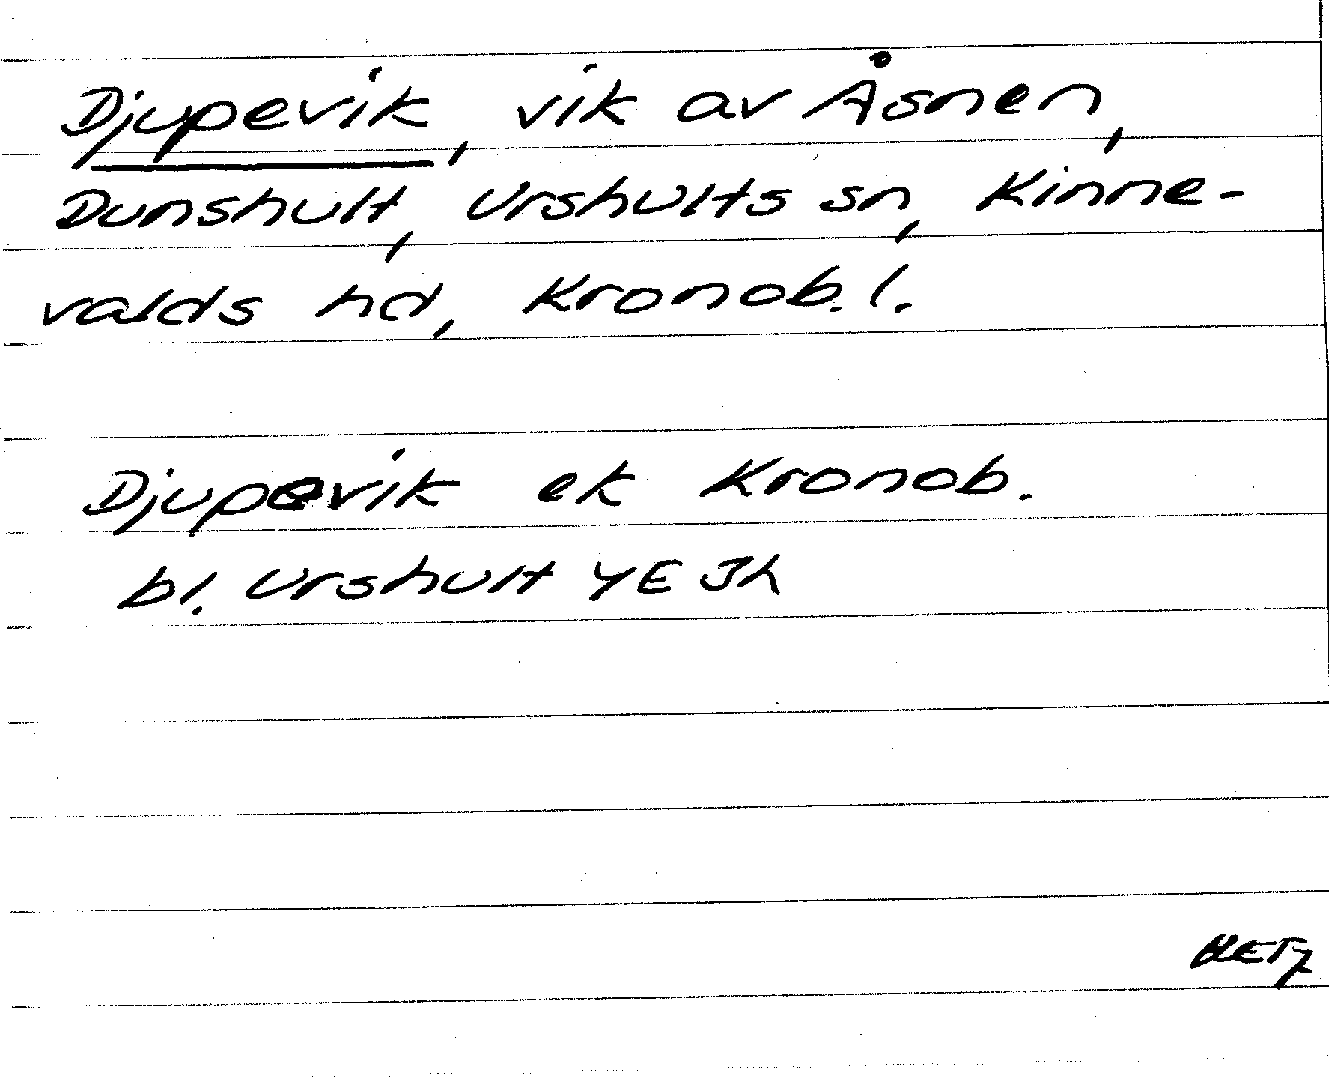 Djupevik, vik av Åsnen,
Dunshult, Urshults sn, Kinne-
valds hd, Kronob. l.
Djupevik ek Kronob.
bl. Urshult 4E Jh